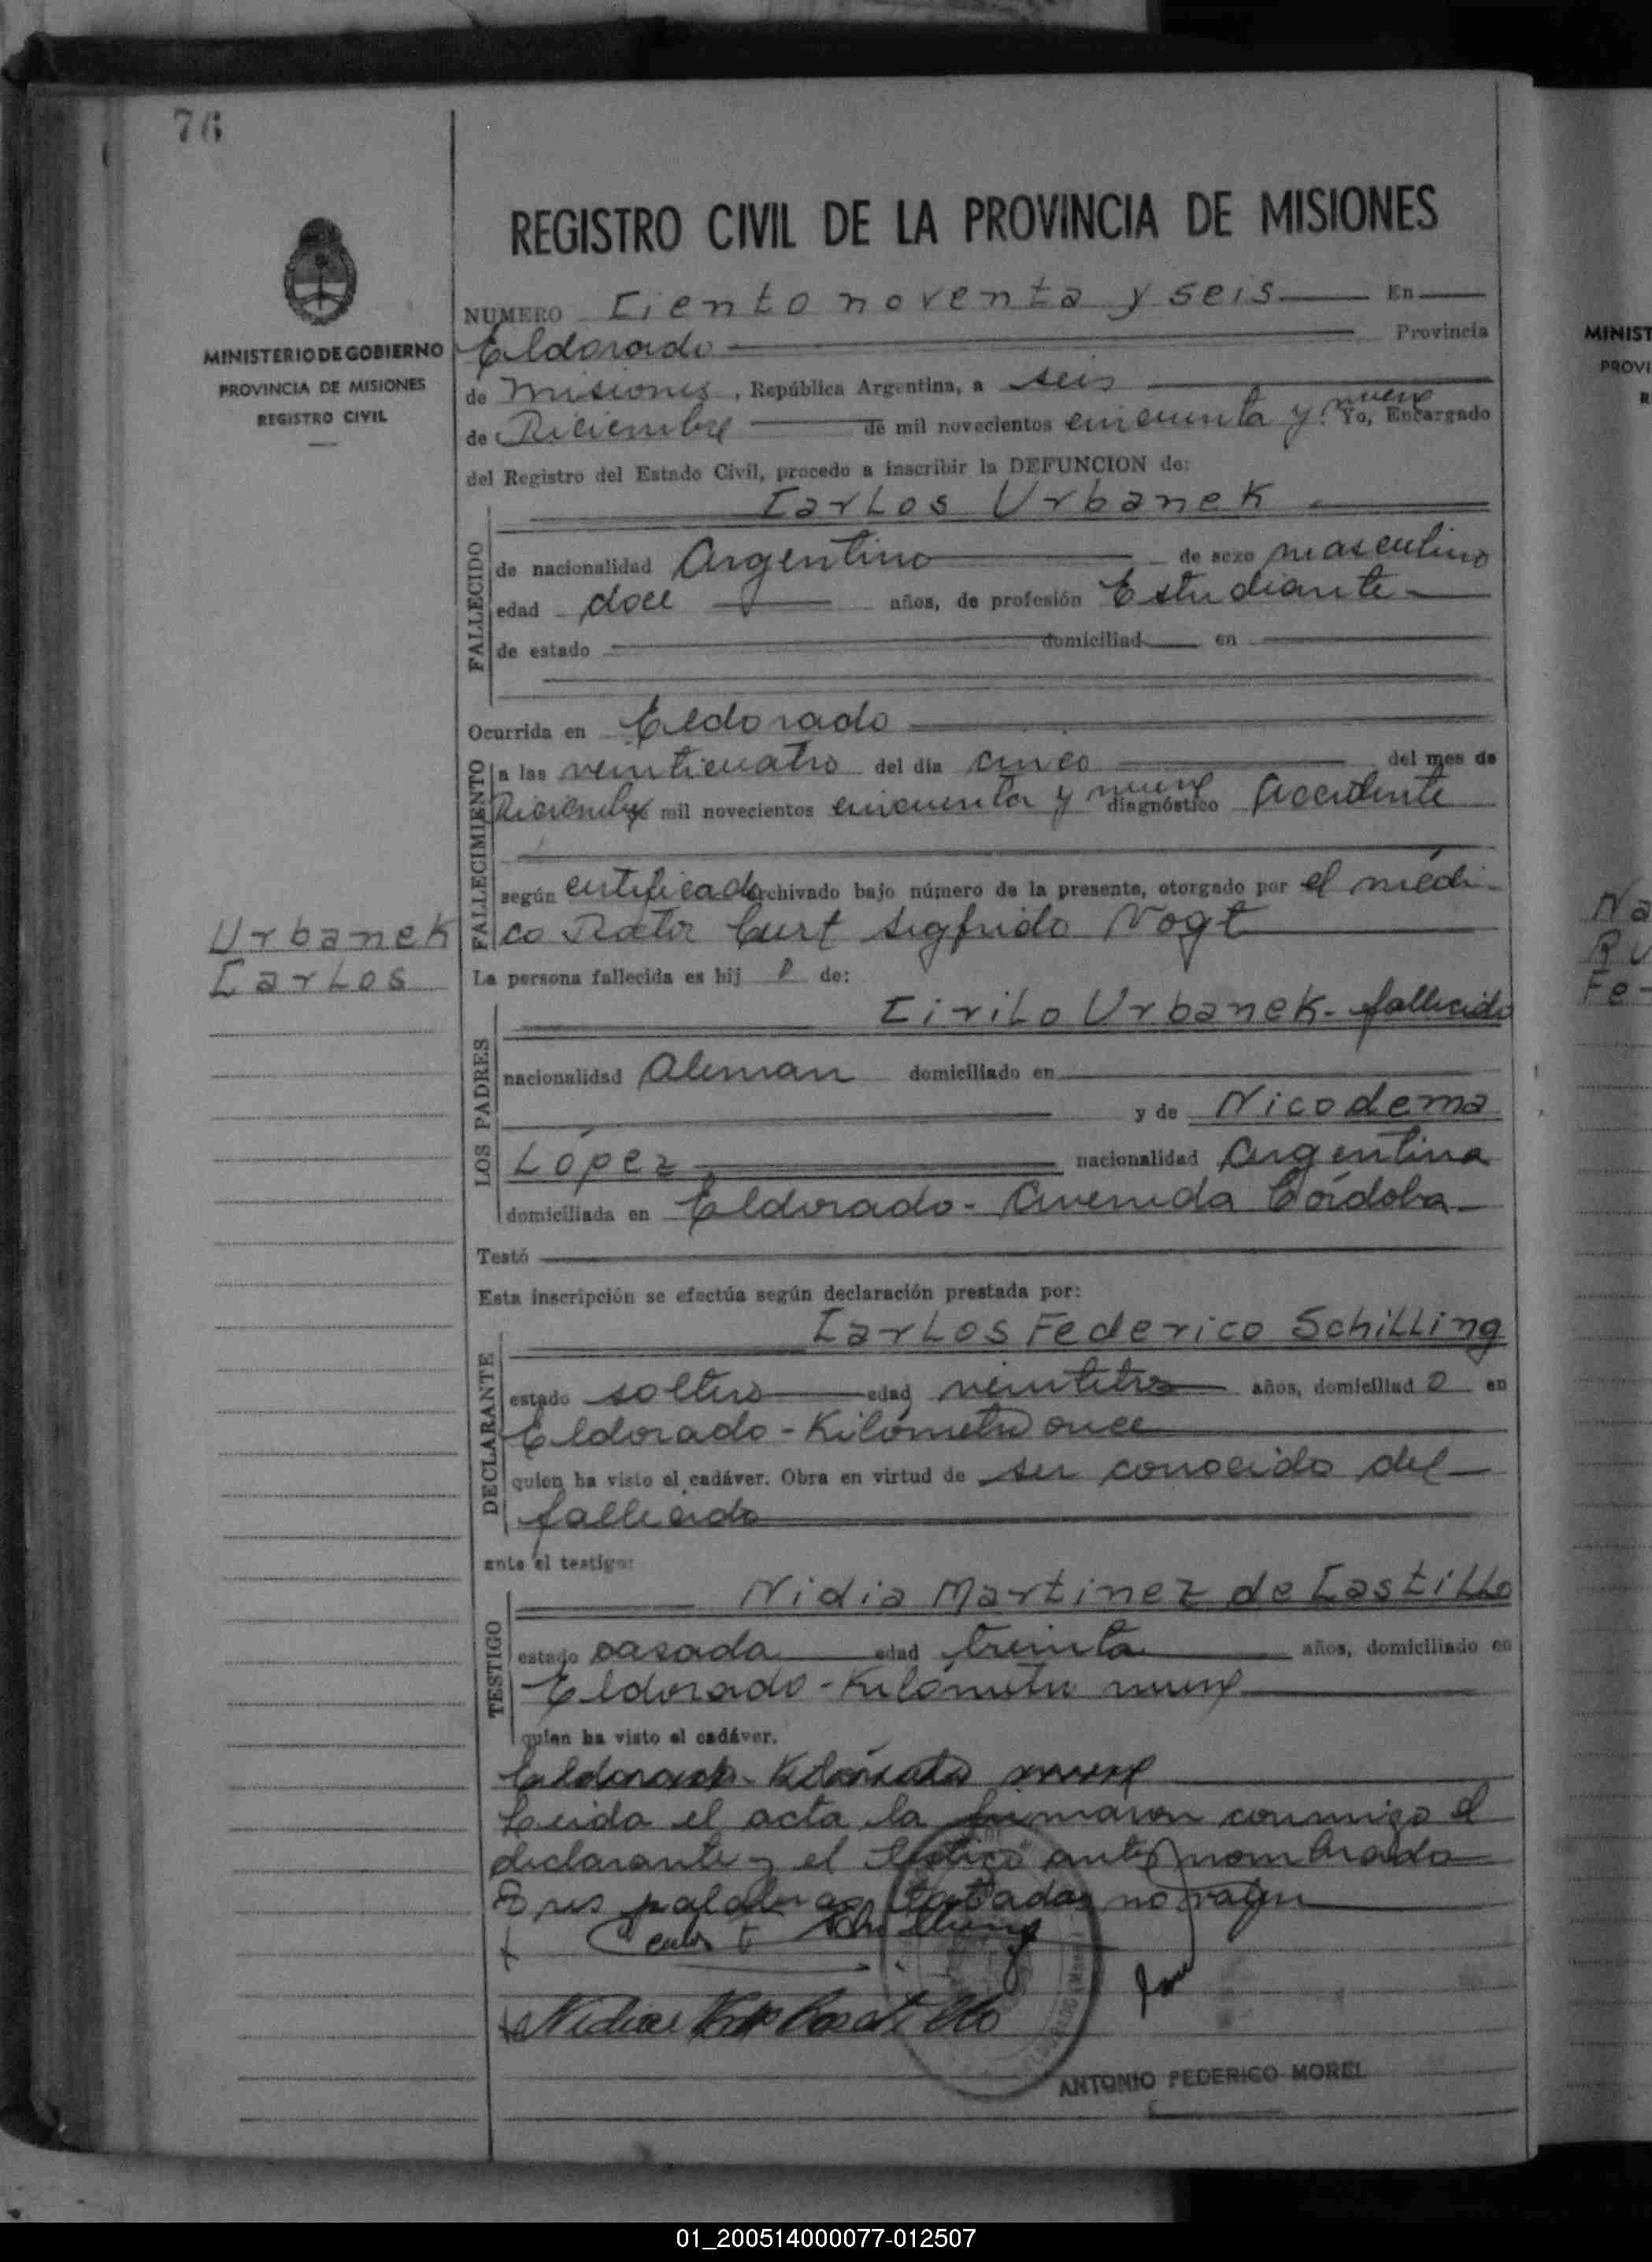 76
REGISTRO CIVIL DE LA PROVINCIA DE MISIONES
MINISTERIO DE GOBIERNO
PROVINCIA DE MISIONES
REGISTRO CIVIL
NUMERO Ciento noventa y seis En
Eldorado Provincia
de Misiones, República Argentina, a seis
de Diciembre de mil novecientos cincuenta y nueve Yo, Encargado
del Registro del Estado Civil, procedo a inscribir la DEFUNCION de:
Carlos Urbanek
FALLECIDO
de nacionalidad Argentino de sexo masculino
edad doce años, de profesión Estudiante
de estado domiciliad en
Ocurrida en Eldorado
FALLECIMIENTO
a las veinticuatro del día cinco del mes de
Diciembre mil novecientos cincuenta y nueve diagnóstico Accidente
según certificado archivado bajo número de la presente, otorgado por el médi-
co Doctor Curt Sigfrido Vogt
Urbanek
Carlos
La persona fallecida es hij o de:
LOS PADRES
Cirilo Urbanek - fallecido
nacionalidad Aleman domiciliado en
y de Nicodema
López nacionalidad Argentina
domiciliada en Eldorado - Avenida Córdoba
Testó
Esta inscripción se efectúa según declaración prestada por:
DECLARANTE
Carlos Federico Schilling
estado soltero edad veintitres años, domiciliad o en
Eldorado - Kilómetro once
quien ha visto el cadáver. Obra en virtud de ser conocido del
fallecido
ante el testigo:
TESTIGO
Nidia Martinez de Castillo
estado casada edad treinta años, domiciliado en
Eldorado - Kilómetro nueve
quien ha visto el cadáver.
Eldorado - Kilómetro nueve
Leida el acta la firmaron conmigo el
declarante y el testigo antes nombrado
Tres palabras testadas no valen
Carlos F Schilling
Nidia M de Castillo
ANTONIO FEDERICO MOREL
MINIST
PROVI
R
Na
Ru
Fe-
01_200514000077-012507